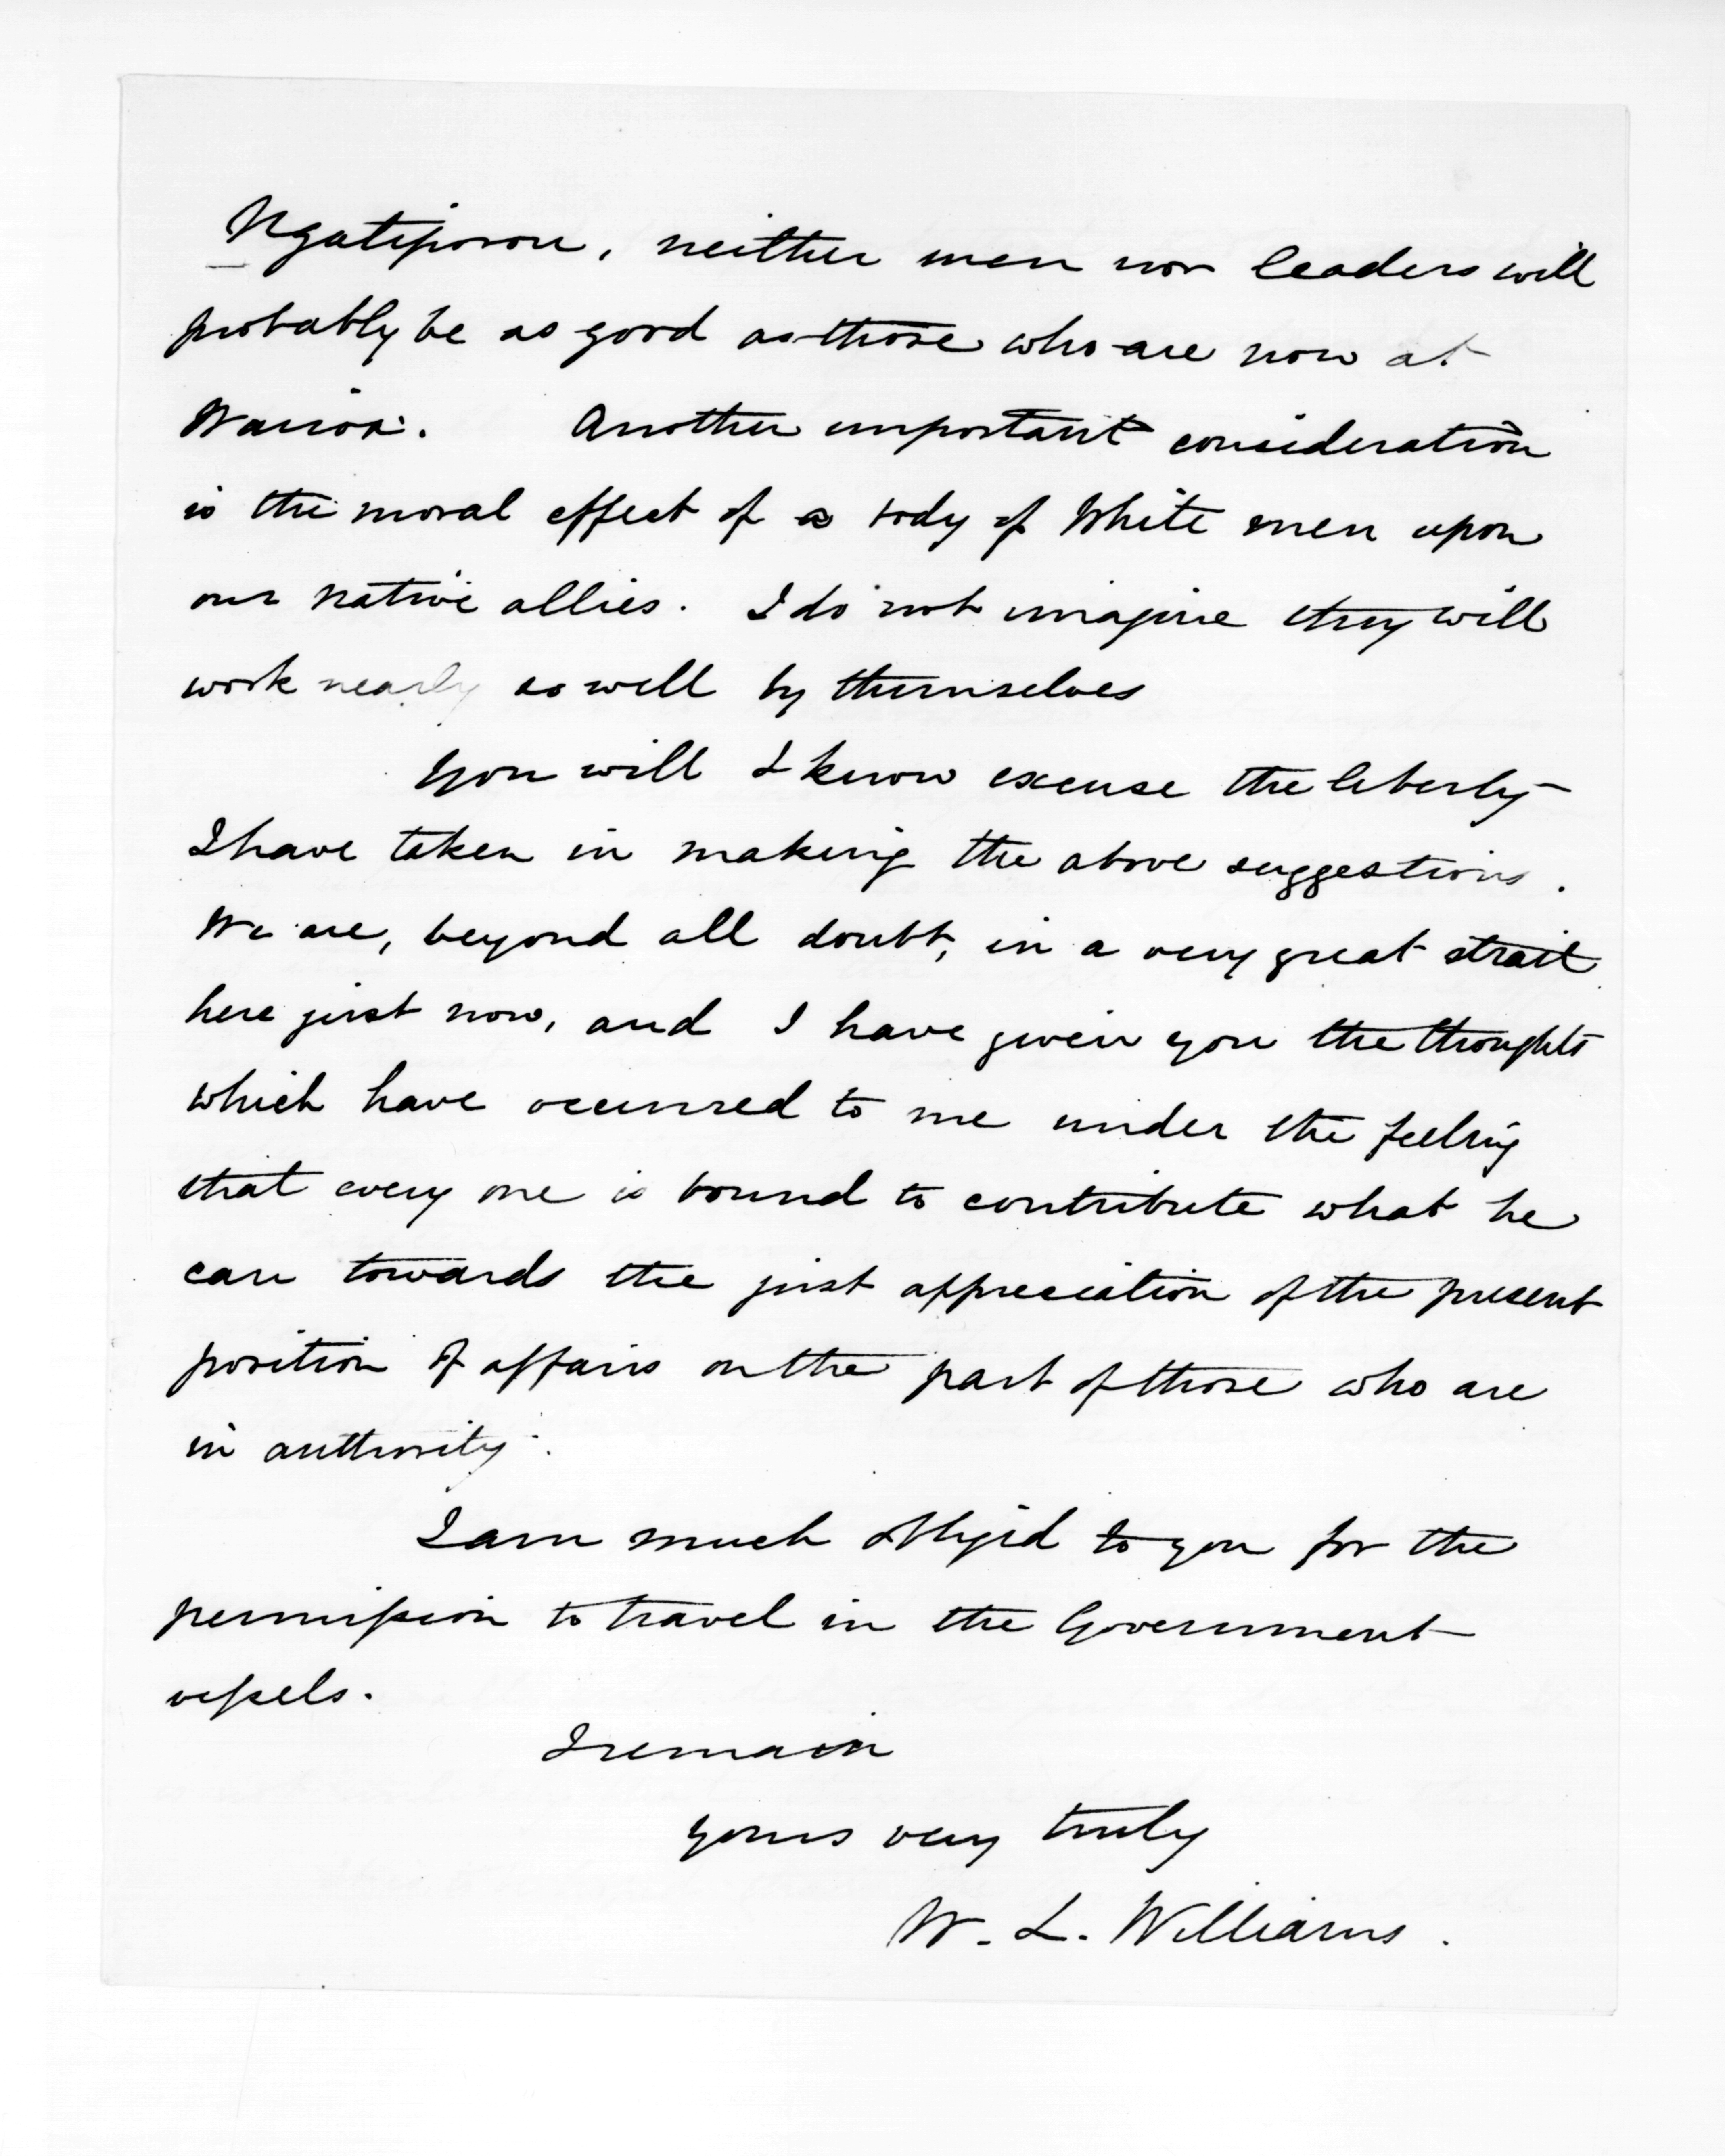 Ngatiporou, neither men nor leaders will
probably be as good as those who are now at
Wairoa. Another important consideration
is the moral effect of a body of White men upon
our native allies. I do not imagine they will
work nearly so well by themselves
You will I know excuse the liberty
I have taken in making the above suggestions.
We are, beyond all doubt, in a very great strait
here just now, and I have given you the thoughts
which have occurred to me under the feeling
that every one is bound to contribute what he
can towards the just appreciation of the present
position of affairs on the part of those who are
in authority.
I am much obliged to you for the
permission to travel in the Government
vessels.
I remain
yours very truly
W. L. Williams.